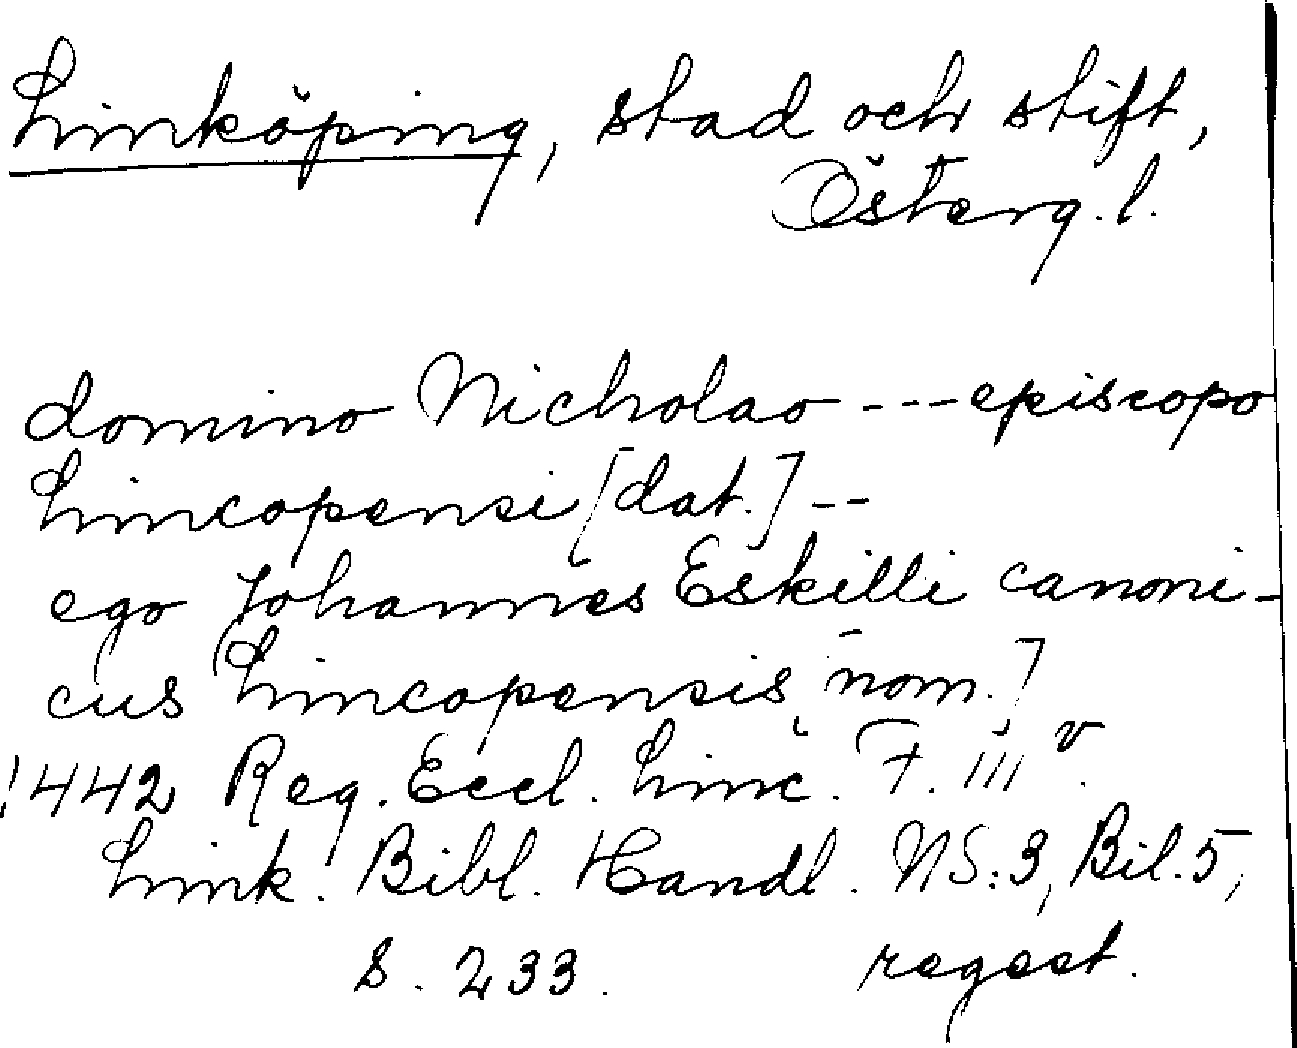 Linköping, stad och stift,
Österg.l.
domino Nicholao --- episcopo
Lincopensi [dat.] --
ego Johannes Eskilli canoni-
cus Lincopensis [nom.]
1442 Reg. Eccl. Linc. F. III v.
Link. Bibl. Handl. NS:3, Bil.5,
s. 233. regest.